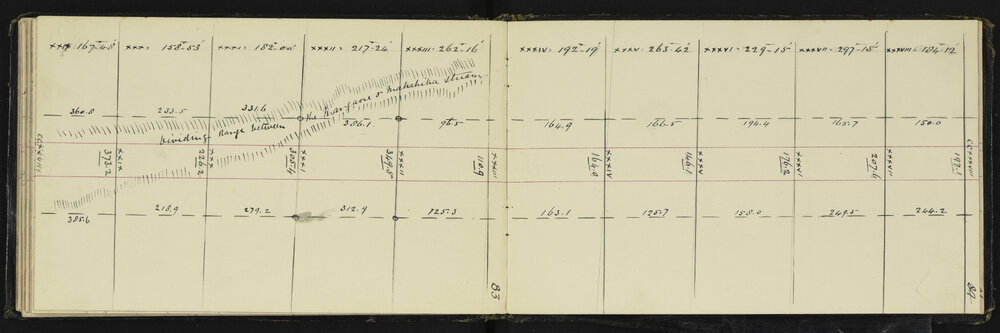 167°-48' xxx- 158°-53' xxxi- 182°-00' xxxii- 217°-24' xxxiii- 262°-16'
360.8 233.5 331.6 386.1 96.5
Dividing Range between the Mangaone & Makahika Stream
373.2 xxix
226.2 xxx
305.4 xxxi
349.5 xxxii
110.9 xxxiii
385.6 218.9 279.2 312.9 125.3
83
xxxiv- 192°-19' xxxv- 263°-42' xxxvi- 229°-15' xxxvii- 297°-15' xxxviii- 184°-12'
164.9 166.5 194.4 165.7 150.0
164.0 xxxiv
146.1 xxxv
176.2 xxxvi
207.6 xxxvii
163.1 125.7 158.0 249.5 244.2
84